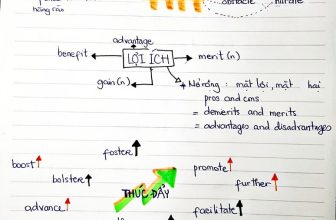 obstacle hurdle
hàng rào
advantage
benefit LỢI ÍCH merit (n)
gain(n) Nở rộng: mặt lợi, mặt hại
pros and cons
= demerits and merits
= advantages and disadvantages
foster
boost promote
bolster further
THÚC ĐẨY
advance facilitate